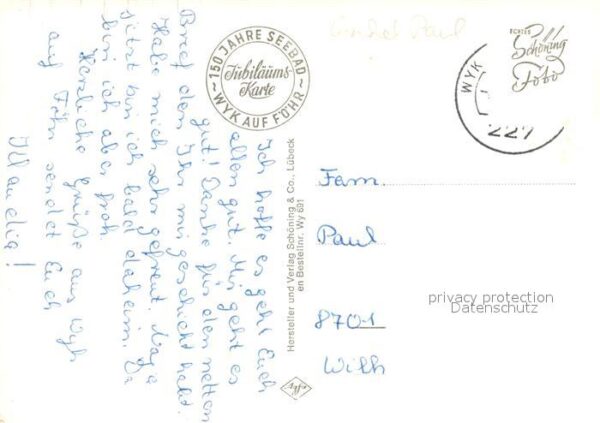 Ich hoffe es geht Euch
allen gut. Mir geht es
gut! Danke für den netten
Brief den Ihr mir geschickt habt.
Habe mich sehr gefreut. Naja
jetzt bin ich bald daheim. Da
bin ich aber froh.
Herzliche Grüße aus Wyk
auf Föhr sendet Euch
Klaudia!
~ 150 JAHRE SEEBAD ~
Jubiläums-
Karte
WYK AUF FÖHR
Hersteller und Verlag Schöning & Co., Lübeck
en Bestellnr. Wy 691
Agfa
Paul
ECHTES
Schöning
Foto
WYK
Fam.
Paul
8701
privacy protection
Datenschutz